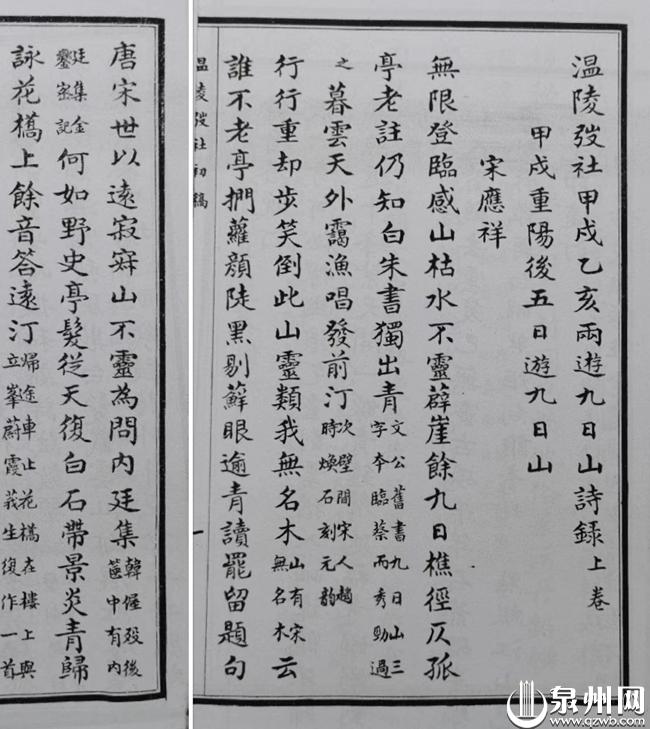 温陵弢社甲戌乙亥兩遊九日山詩録 上卷
甲戌重陽後五日遊九日山
宋應祥
無限登臨感山枯水不靈薜崖餘九日樵徑仄孤
亭老註仍知白朱書獨出青文公舊書九日山三字本臨蔡而秀勁過
之暮雲天外靄漁唱發前汀次壁間宋人趙時煥石刻元韵
行行重却步笑倒此山靈類我無名木山有宋無名木云
誰不老亭捫蘿顏陡黑剔蘚眼逾青讀罷留題句
温陵弢社初稿 一
唐宋世以遠寂寞山不靈為問内廷集韓偓殁後篋中有内
廷集金鑾密記何如野史亭髮從天復白石帶景炎青歸
詠花橋上餘音答遠汀歸途車止花橋在樓上與立峯蔚霞莪生復作一首
泉州网
www.qzwb.com